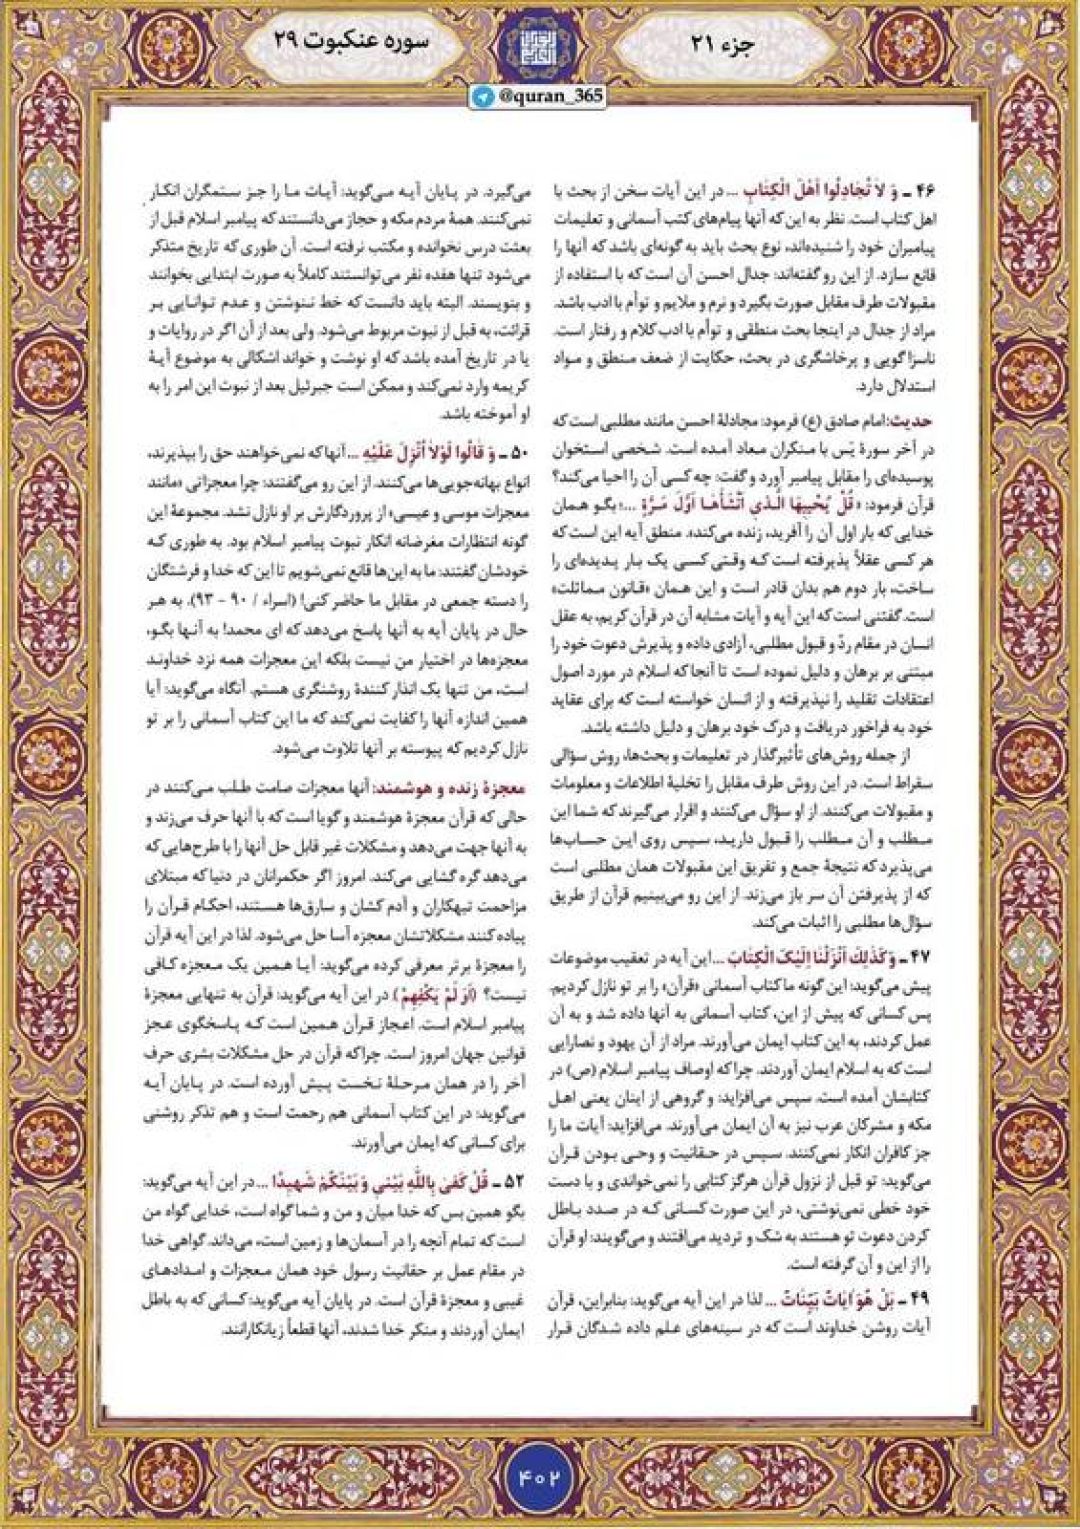 جزء ۲۱
سوره عنکبوت ۲۹
@quran_365
۴۶ ـ وَ لاٰ تُجٰادِلُوا اَهْلَ الْکِتٰابِ ... در این آیات سخن از بحث با
اهل کتاب است. نظر به این که آنها پیام‌های کتب آسمانی و تعلیمات
پیامبران خود را شنیده‌اند، نوع بحث باید به گونه‌ای باشد که آنها را
قانع سازد. از این رو گفته‌اند: جدال احسن آن است که با استفاده از
مقبولات طرف مقابل صورت بگیرد و نرم و ملایم و توأم با ادب باشد.
مراد از جدال در اینجا بحث منطقی و توأم با ادب کلام و رفتار است.
ناسزا گویی و پرخاشگری در بحث، حکایت از ضعف منطق و مواد
استدلال دارد.
حدیث: امام صادق (ع) فرمود: مجادلهٔ احسن مانند مطلبی است که
در آخر سورهٔ یٓس با منکران معاد آمده است. شخصی استخوان
پوسیده‌ای را مقابل پیامبر آورد و گفت: چه کسی آن را احیا می‌کند؟
قرآن فرمود: «قُلْ یُحْیِیهَا الَّذي أَنْشَأَهٰا أَوَّلَ مَرَّةٍ ...؛ بگو همان
خدایی که بار اول آن را آفرید، زنده می‌کند». منطق آیه این است که
هر کسی عقلاً پذیرفته است که وقتی کسی یک بار پدیده‌ای را
ساخت، بار دوم هم بدان قادر است و این همان «قانون مماثلت»
است. گفتنی است که این آیه و آیات مشابه آن در قرآن کریم، به عقل
انسان در مقام ردّ و قبول مطلبی، آزادی داده و پذیرش دعوت خود را
مبتنی بر برهان و دلیل نموده است تا آنجا که اسلام در مورد اصول
اعتقادات تقلید را نپذیرفته و از انسان خواسته است که برای عقاید
خود به فراخور دریافت و درک خود برهان و دلیل داشته باشد.
از جمله روش‌های تأثیرگذار در تعلیمات و بحث‌ها، روش سؤالی
سقراط است. در این روش طرف مقابل را تخلیهٔ اطلاعات و معلومات
و مقبولات می‌کنند. از او سؤال می‌کنند و اقرار می‌گیرند که شما این
مطلب و آن مطلب را قبول دارید، سپس روی این حساب‌ها
می‌پذیرد که نتیجهٔ جمع و تفریق این مقبولات همان مطلبی است
که از پذیرفتن آن سر باز می‌زند. از این رو می‌بینیم قرآن از طریق
سؤال‌ها مطلبی را اثبات می‌کند.
۴۷ ـ وَ کَذٰلِكَ أَنْزَلْنٰا إِلَیْكَ الْکِتٰابَ ... این آیه در تعقیب موضوعات
پیش می‌گوید: این گونه ما کتاب آسمانی «قرآن» را بر تو نازل کردیم.
پس کسانی که پیش از این، کتاب آسمانی به آنها داده شد و به آن
عمل کردند، به این کتاب ایمان می‌آورند. مراد از آن یهود و نصارایی
است که به اسلام ایمان آوردند. چراکه اوصاف پیامبر اسلام (ص) در
کتابشان آمده است. سپس می‌افزاید: و گروهی از اینان یعنی اهل
مکه و مشرکان عرب نیز به آن ایمان می‌آورند. می‌افزاید: آیات ما را
جز کافران انکار نمی‌کنند. سپس در حقانیت و وحی بودن قرآن
می‌گوید: تو قبل از نزول قرآن هرگز کتابی را نمی‌خواندی و با دست
خود خطی نمی‌نوشتی، در این صورت کسانی که در صدد باطل
کردن دعوت تو هستند به شک و تردید می‌افتند و می‌گویند: او قرآن
را از این و آن گرفته است.
۴۹ ـ بَلْ هُوَ اٰیٰاتٌ بَیِّنٰاتٌ ... لذا در این آیه می‌گوید: بنابراین، قرآن
آیات روشن خداوند است که در سینه‌های علم داده شدگان قرار
می‌گیرد. در پایان آیه می‌گوید: آیات ما را جز ستمگران انکار
نمی‌کنند. همهٔ مردم مکه و حجاز می‌دانستند که پیامبر اسلام قبل از
بعثت درس نخوانده و مکتب نرفته است. آن طوری که تاریخ متذکر
می‌شود تنها هفده نفر می‌توانستند کاملاً به صورت ابتدایی بخوانند
و بنویسند. البته باید دانست که خط ننوشتن و عدم توانایی بر
قرائت، به قبل از نبوت مربوط می‌شود. ولی بعد از آن اگر در روایات و
یا در تاریخ آمده باشد که او نوشت و خواند اشکالی به موضوع آیهٔ
کریمه وارد نمی‌کند و ممکن است جبرئیل بعد از نبوت این امر را به
او آموخته باشد.
۵۰ ـ وَ قٰالُوا لَوْلاٰ أُنْزِلَ عَلَیْهِ ... آنها که نمی‌خواهند حق را بپذیرند،
انواع بهانه‌جویی‌ها می‌کنند. از این رو می‌گفتند: چرا معجزاتی «مانند
معجزات موسی و عیسی» از پروردگارش بر او نازل نشد. مجموعهٔ این
گونه انتظارات مغرضانه انکار نبوت پیامبر اسلام بود. به طوری که
خودشان گفتند: ما به این‌ها قانع نمی‌شویم تا این که خدا و فرشتگان
را دسته جمعی در مقابل ما حاضر کنی! (اسراء / ۹۰ - ۹۳). به هر
حال در پایان آیه به آنها پاسخ می‌دهد که ای محمد! به آنها بگو،
معجزه‌ها در اختیار من نیست بلکه این معجزات همه نزد خداوند
است، من تنها یک انذار کنندهٔ روشنگری هستم. آنگاه می‌گوید: آیا
همین اندازه آنها را کفایت نمی‌کند که ما این کتاب آسمانی را بر تو
نازل کردیم که پیوسته بر آنها تلاوت می‌شود.
معجزهٔ زنده و هوشمند: آنها معجزات صامت طلب می‌کنند در
حالی که قرآن معجزهٔ هوشمند و گویا است که با آنها حرف می‌زند و
به آنها جهت می‌دهد و مشکلات غیر قابل حل آنها را با طرح‌هایی که
می‌دهد گره گشایی می‌کند. امروز اگر حکمرانان در دنیا که مبتلای
مزاحمت تبهکاران و آدم کشان و سارق‌ها هستند، احکام قرآن را
پیاده کنند مشکلاتشان معجزه آسا حل می‌شود. لذا در این آیه قرآن
را معجزهٔ برتر معرفی کرده می‌گوید: آیا همین یک معجزه کافی
نیست؟ (أَوَ لَمْ یَکْفِهِمْ) در این آیه می‌گوید: قرآن به تنهایی معجزهٔ
پیامبر اسلام است. اعجاز قرآن همین است که پاسخگوی عجز
قوانین جهان امروز است. چراکه قرآن در حل مشکلات بشری حرف
آخر را در همان مرحلهٔ نخست پیش آورده است. در پایان آیه
می‌گوید: در این کتاب آسمانی هم رحمت است و هم تذکر روشنی
برای کسانی که ایمان می‌آورند.
۵۲ ـ قُلْ کَفیٰ بِاللّٰهِ بَیْني وَ بَیْنَکُمْ شَهیدًا ... در این آیه می‌گوید:
بگو همین بس که خدا میان و من و شما گواه است، خدایی گواه من
است که تمام آنچه را در آسمان‌ها و زمین است، می‌داند. گواهی خدا
در مقام عمل بر حقانیت رسول خود همان معجزات و امدادهای
غیبی و معجزهٔ قرآن است. در پایان آیه می‌گوید: کسانی که به باطل
ایمان آوردند و منکر خدا شدند، آنها قطعاً زیانکارانند.
۴۰۲